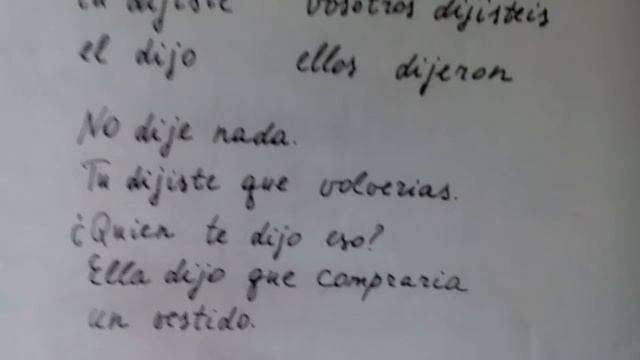 tu dijiste vosotros dijisteis
el dijo ellos dijeron
No dije nada.
Tu dijiste que volverias.
¿Quien te dijo eso?
Ella dijo que compraria
un vestido.